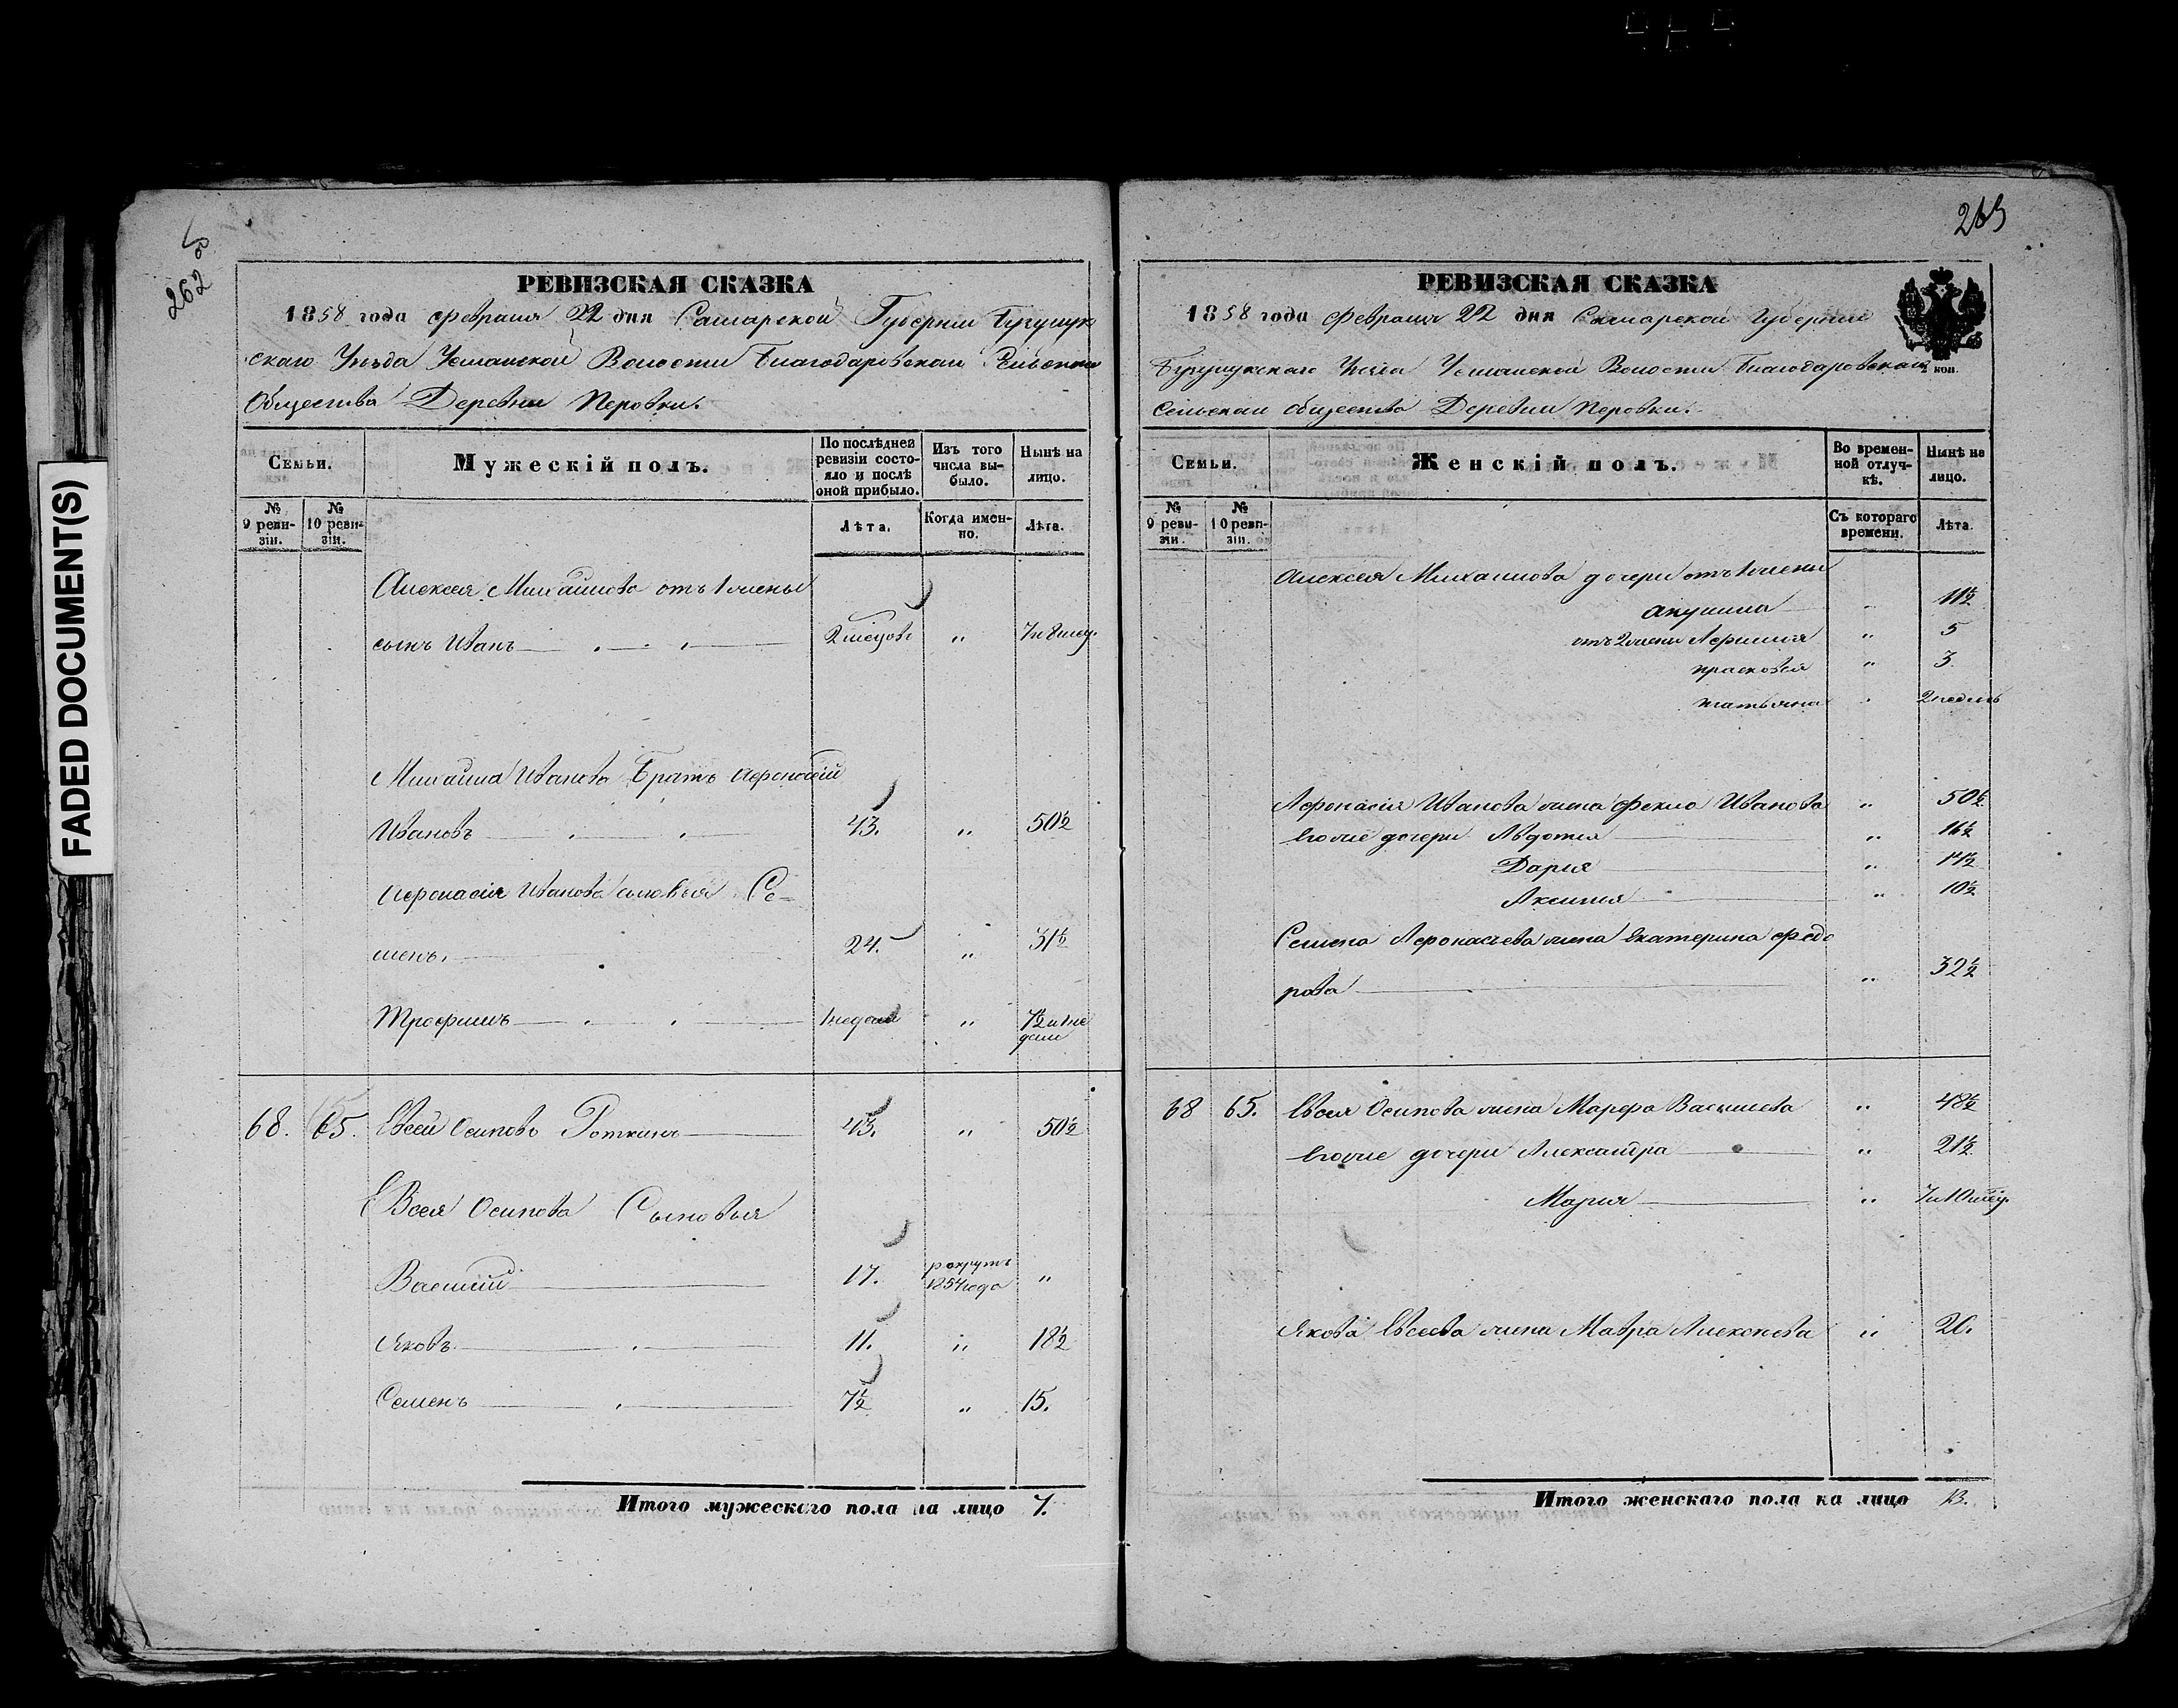 FADED DOCUMENT(S)
262 об
РЕВИЗСКАЯ СКАЗКА
1858 года февраля 22 дня Самарской Губернии Бугулук
скаго Уѣзда Усманской Волости Благодаровскаго Сельскаго
Общества Деревни Перовки.
Семьи.
Мужескій полъ.
По послѣдней ревизіи состояло и послѣ оной прибыло.
Изъ того числа выбыло.
Нынѣ на лицо.
№ 9 ревизіи.
№ 10 ревизіи.
Лѣта.
Когда именно.
Лѣта.
Алексея Михайлова отъ 1 жены
сынъ Иванъ 2 месецовъ " 7 и 8 мец.
Михаила Иванова Братъ Афонасій
Ивановъ 43. " 50½
Афонасія Иванова сыновья Се-
менъ. 24. " 31½
Трофимъ 1 недели " 7½ и 1 не
дели
68. 65. Евсей Осиповъ 43. " 50½
Евсея Осипова Сыновья
Василий 17. рекрутъ 1854 года "
Яковъ 11. " 18½
Семенъ 7½ " 15.
Итого мужескаго пола на лицо 7.
263
РЕВИЗСКАЯ СКАЗКА
1858 года февраля 22 дня Самарской Губернии
Усманской Волости Благодаровскаго
коп.
Сельскаго общества Деревни Перовки.
Семьи.
Женскій полъ.
Во временной отлучкѣ.
Нынѣ на лицо.
№ 9 ревизіи.
№ 10 ревизіи.
Съ котораго времени.
Лѣта.
Алексея Михаилова дочери отъ 1 жены
Акулина " 11½
отъ 2 жены " 5
Прасковья " 3
Татьяна " 2 недель
Афонасія Иванова жена Фекла Иванова " 50½
Ево же дочери Авдотья " 16½
Дарья "
Аксинья " 10½
Семена Афонасьева жена Екатерина Федо
рова " 32½
68 65. Евсея Осипова жена Марфа Васильева " 48½
Ево же дочери Александра " 21½
Марья " 7 и 10 мец.
Якова Евсеева жена Мавра Алексеева " 20.
Итого женскаго пола на лицо 13.